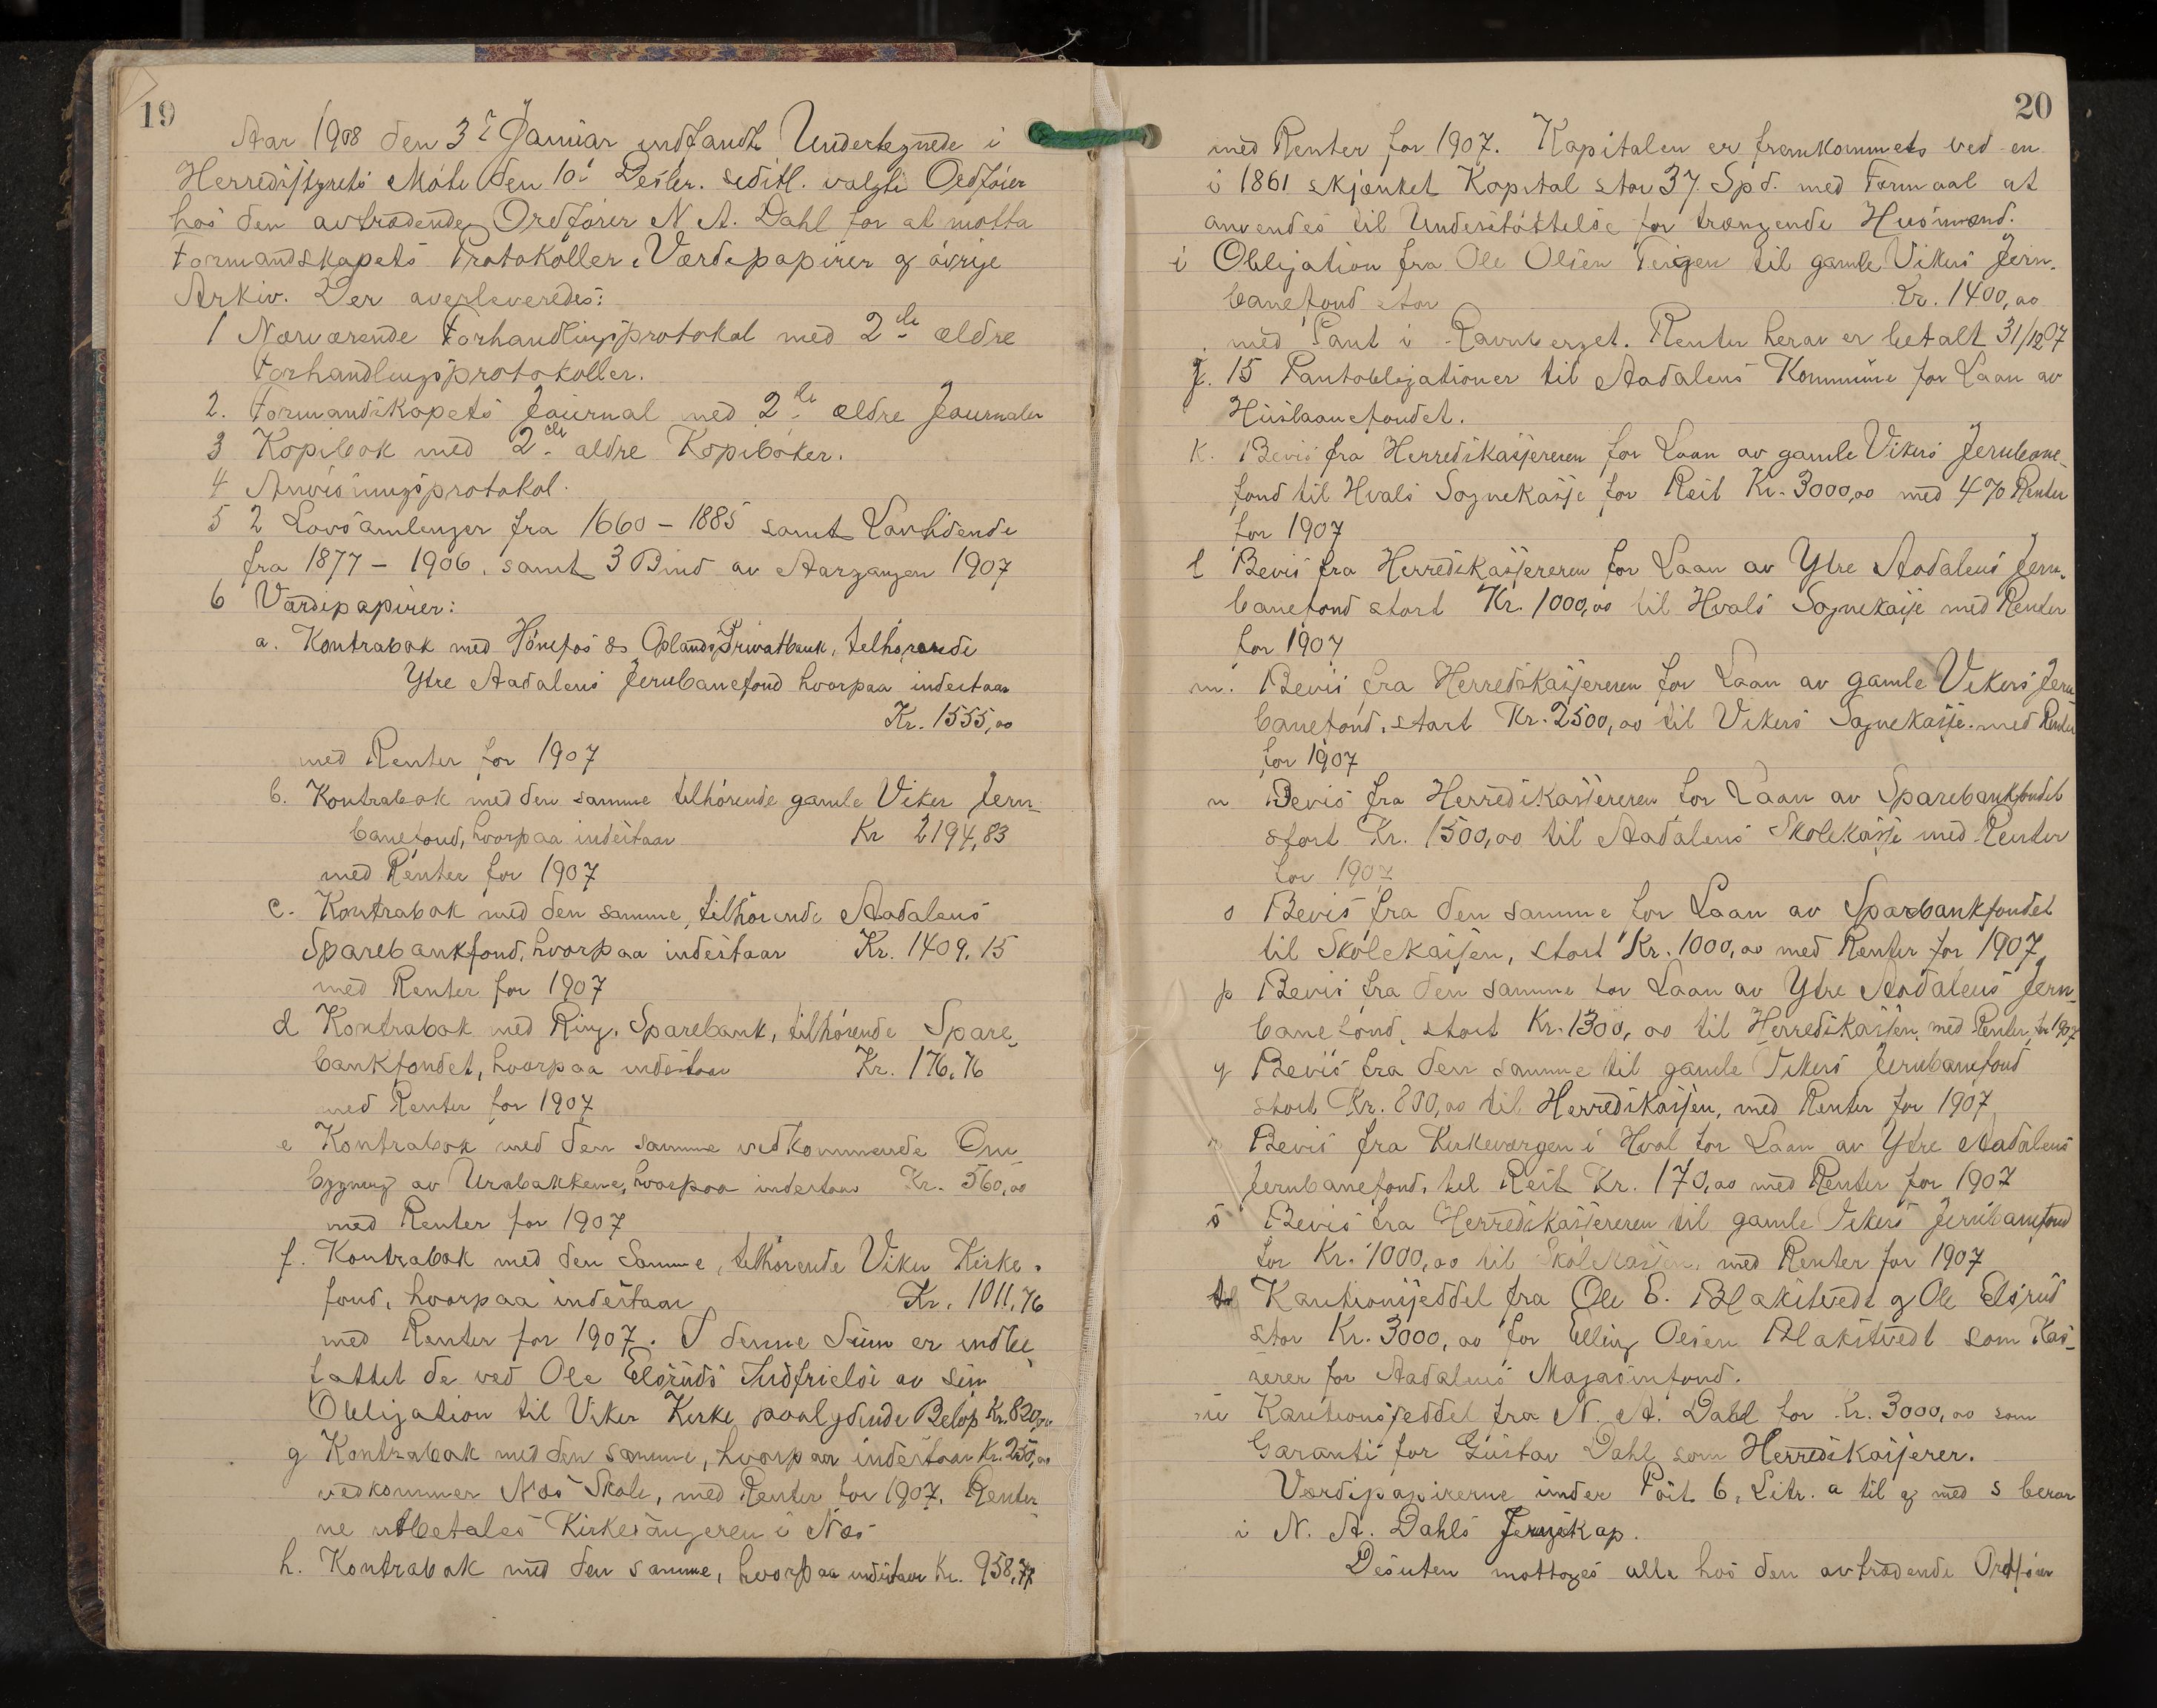 19
Aar 1908 den 3die Januar indfandt Undertegnede i
Herredsstyrets Møte den 10de Desbr. sidstl. valgte Ordfører
hos den avtrædende Ordfører N. A. Dahl for at motta
Formandskapets Protokoller, Værdipapirer og øvrige
Arkiv. Der averleveredes:
1 Nærværende Forhandlingsprotokol med 2de ældre
Forhandlingsprotokoller.
2. Formandskapets Journal med 2de ældre Journaler
3 Kopibok med 2de ældre Kopibøker.
4 Anvisningsprotokol.
5 2 Lovsamlinger fra 1660 – 1885 samt Lovtidende
fra 1877 – 1906, samt 3 Bind av Aargangen 1907
6 Værdipapirer:
a. Kontrabok med Hønefos & Oplands Privatbank, tilhørende
Ytre Aadalens Jernbanefond hvorpaa indestaar
Kr. 1555,00
med Renter for 1907
b. Kontrabok med den samme tilhørende gamle Viker Jern-
banefond, hvorpaa indestaar Kr 2194,83
med Renter for 1907
c. Kontrabok med den samme, tilhørende Aadalens
Sparebankfond, hvorpaa indestaar Kr. 1409,15
med Renter for 1907
d Kontrabok med Ring. Sparebank, tilhørende Spare-
bankfondet, hvorpaa indestaar Kr. 176,76
med Renter for 1907
e Kontrabok med den samme vedkommende Om-
bygning av Urabakkene, hvorpaa indestaar Kr. 560,00
med Renter for 1907
f. Kontrabok med den samme, tilhørende Viker Kirke-
fond, hvorpaa indestaar Kr. 1011,76
med Renter for 1907. I denne Sum er indbe
fattet de ved Ole Elsruds Indfrielse av sin
Obligation til Viker Kirke paalydende Beløp Kr. 820,00
g Kontrabok med den samme, hvorpaa indestaar Kr. 250,00
vedkommer Næs Skole, med Renter for 1907. Renter
ne utbetales Kirkesangeren i Næs
h. Kontrabok med den samme, hvorpaa indestaar Kr. 958,77
20
med Renter for 1907. Kapitalen er fremkommet ved en
i 1861 skjænket Kapital stor 37 Spd. med Formaal at
anvendes til Understøttelse for trængende Husmænd.
i Obligation fra Ole Olsen Teigen til gamle Vikers Jern-
banefond stor Kr. 1400,00
med Pant i Ravnberget. Renter herav er betalt 31/12 07
j. 15 Pantobligationer til Aadalens Kommune for Laan av
Huslaanefondet.
k. Bevis fra Herredskassereren for Laan av gamle Vikers Jernbane-
fond til Hvals Sognekasse for Rest Kr. 3000,00 med 4% Renter
for 1907
l Bevis fra Herredskassereren for Laan av Ytre Aadalens Jern-
banefond stort Kr. 1000,00 til Hvals Sognekasse med Renter
for 1907
m. Bevis fra Herredskassereren for Laan av gamle Vikers Jern
banefond, stort Kr. 2500,00 til Vikers Sognekasse med Renter
for 1907
n Bevis fra Herredskassereren for Laan av Sparebankfondet
stort Kr. 1500,00 til Aadalens Skolekasse med Renter
for 1907
o Bevis fra den samme for Laan av Sparbankfondet
til Skolekassen, stort Kr. 1000,00 med Renter for 1907
p Bevis fra den samme for Laan av Ytre Aadalens Jern-
banefond, stort Kr. 1300,00 til Herredskassen, med Renter for 1907
q Bevis fra den samme til gamle Vikers Jernbanefond
stort Kr. 800,00 til Herredskassen, med Renter for 1907
r Bevis fra Kirkeværgen i Hval for Laan av Ytre Aadalens
Jernbanefond, til Rest Kr. 170,00 med Renter for 1907
s Bevis fra Herredskassereren til gamle Vikers Jernbanefond
for Kr. 1000,00 til Skolekassen, med Renter for 1907
t Kautionsseddel fra Ole E. Blakstvedt og Ole Elsrud
stor Kr. 3000,00 for Elling Olsen Blakstvedt som Kas-
serer for Aadalens Magasinfond.
u Kautionsseddel fra N. A. Dahl for Kr. 3000,00 som
Garanti for Gustav Dahl som Herredskasserer.
Værdipapirerne under Post 6, Litr. a til og med s beror
i N. A. Dahls Jernskap.
Desuten mottoges alle hos den avtrædende Ordfører